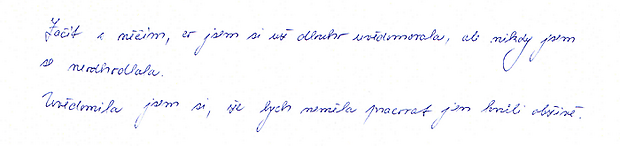 Začít s něčím, co jsem si už dlouho uvědomovala, ale nikdy jsem
se neodhodlala.
Uvědomila jsem si, že bych neměla pracovat jen kvůli obživě.